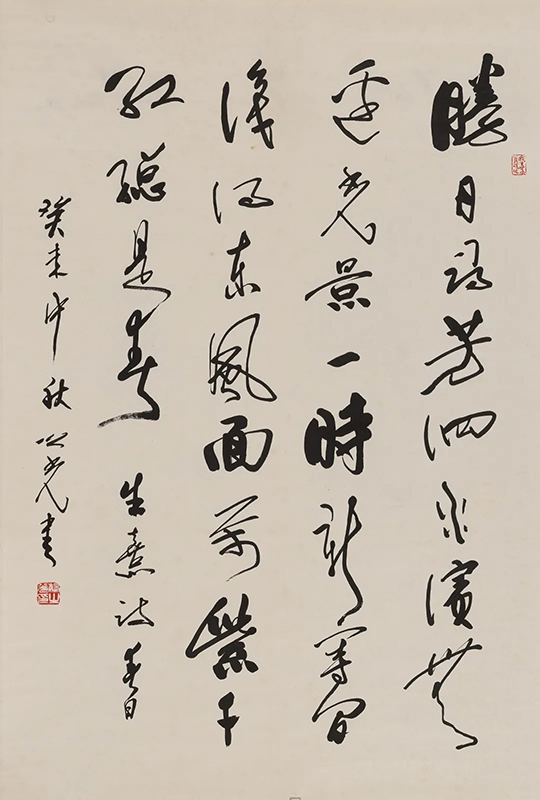 勝日尋芳泗水濱無
邊光景一時新等閒
識得東風面萬紫千
紅總是春 朱熹詩春日
癸未中秋 光書